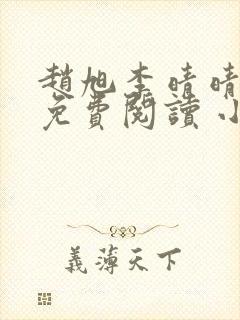 趙旭李晴晴
免費閱讀小
義薄天下